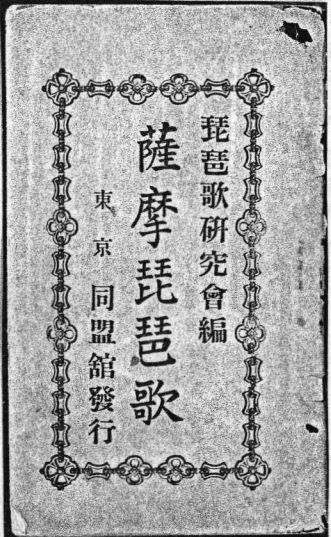 琵琶歌研究會編
薩摩琵琶歌
東京 同盟舘發行